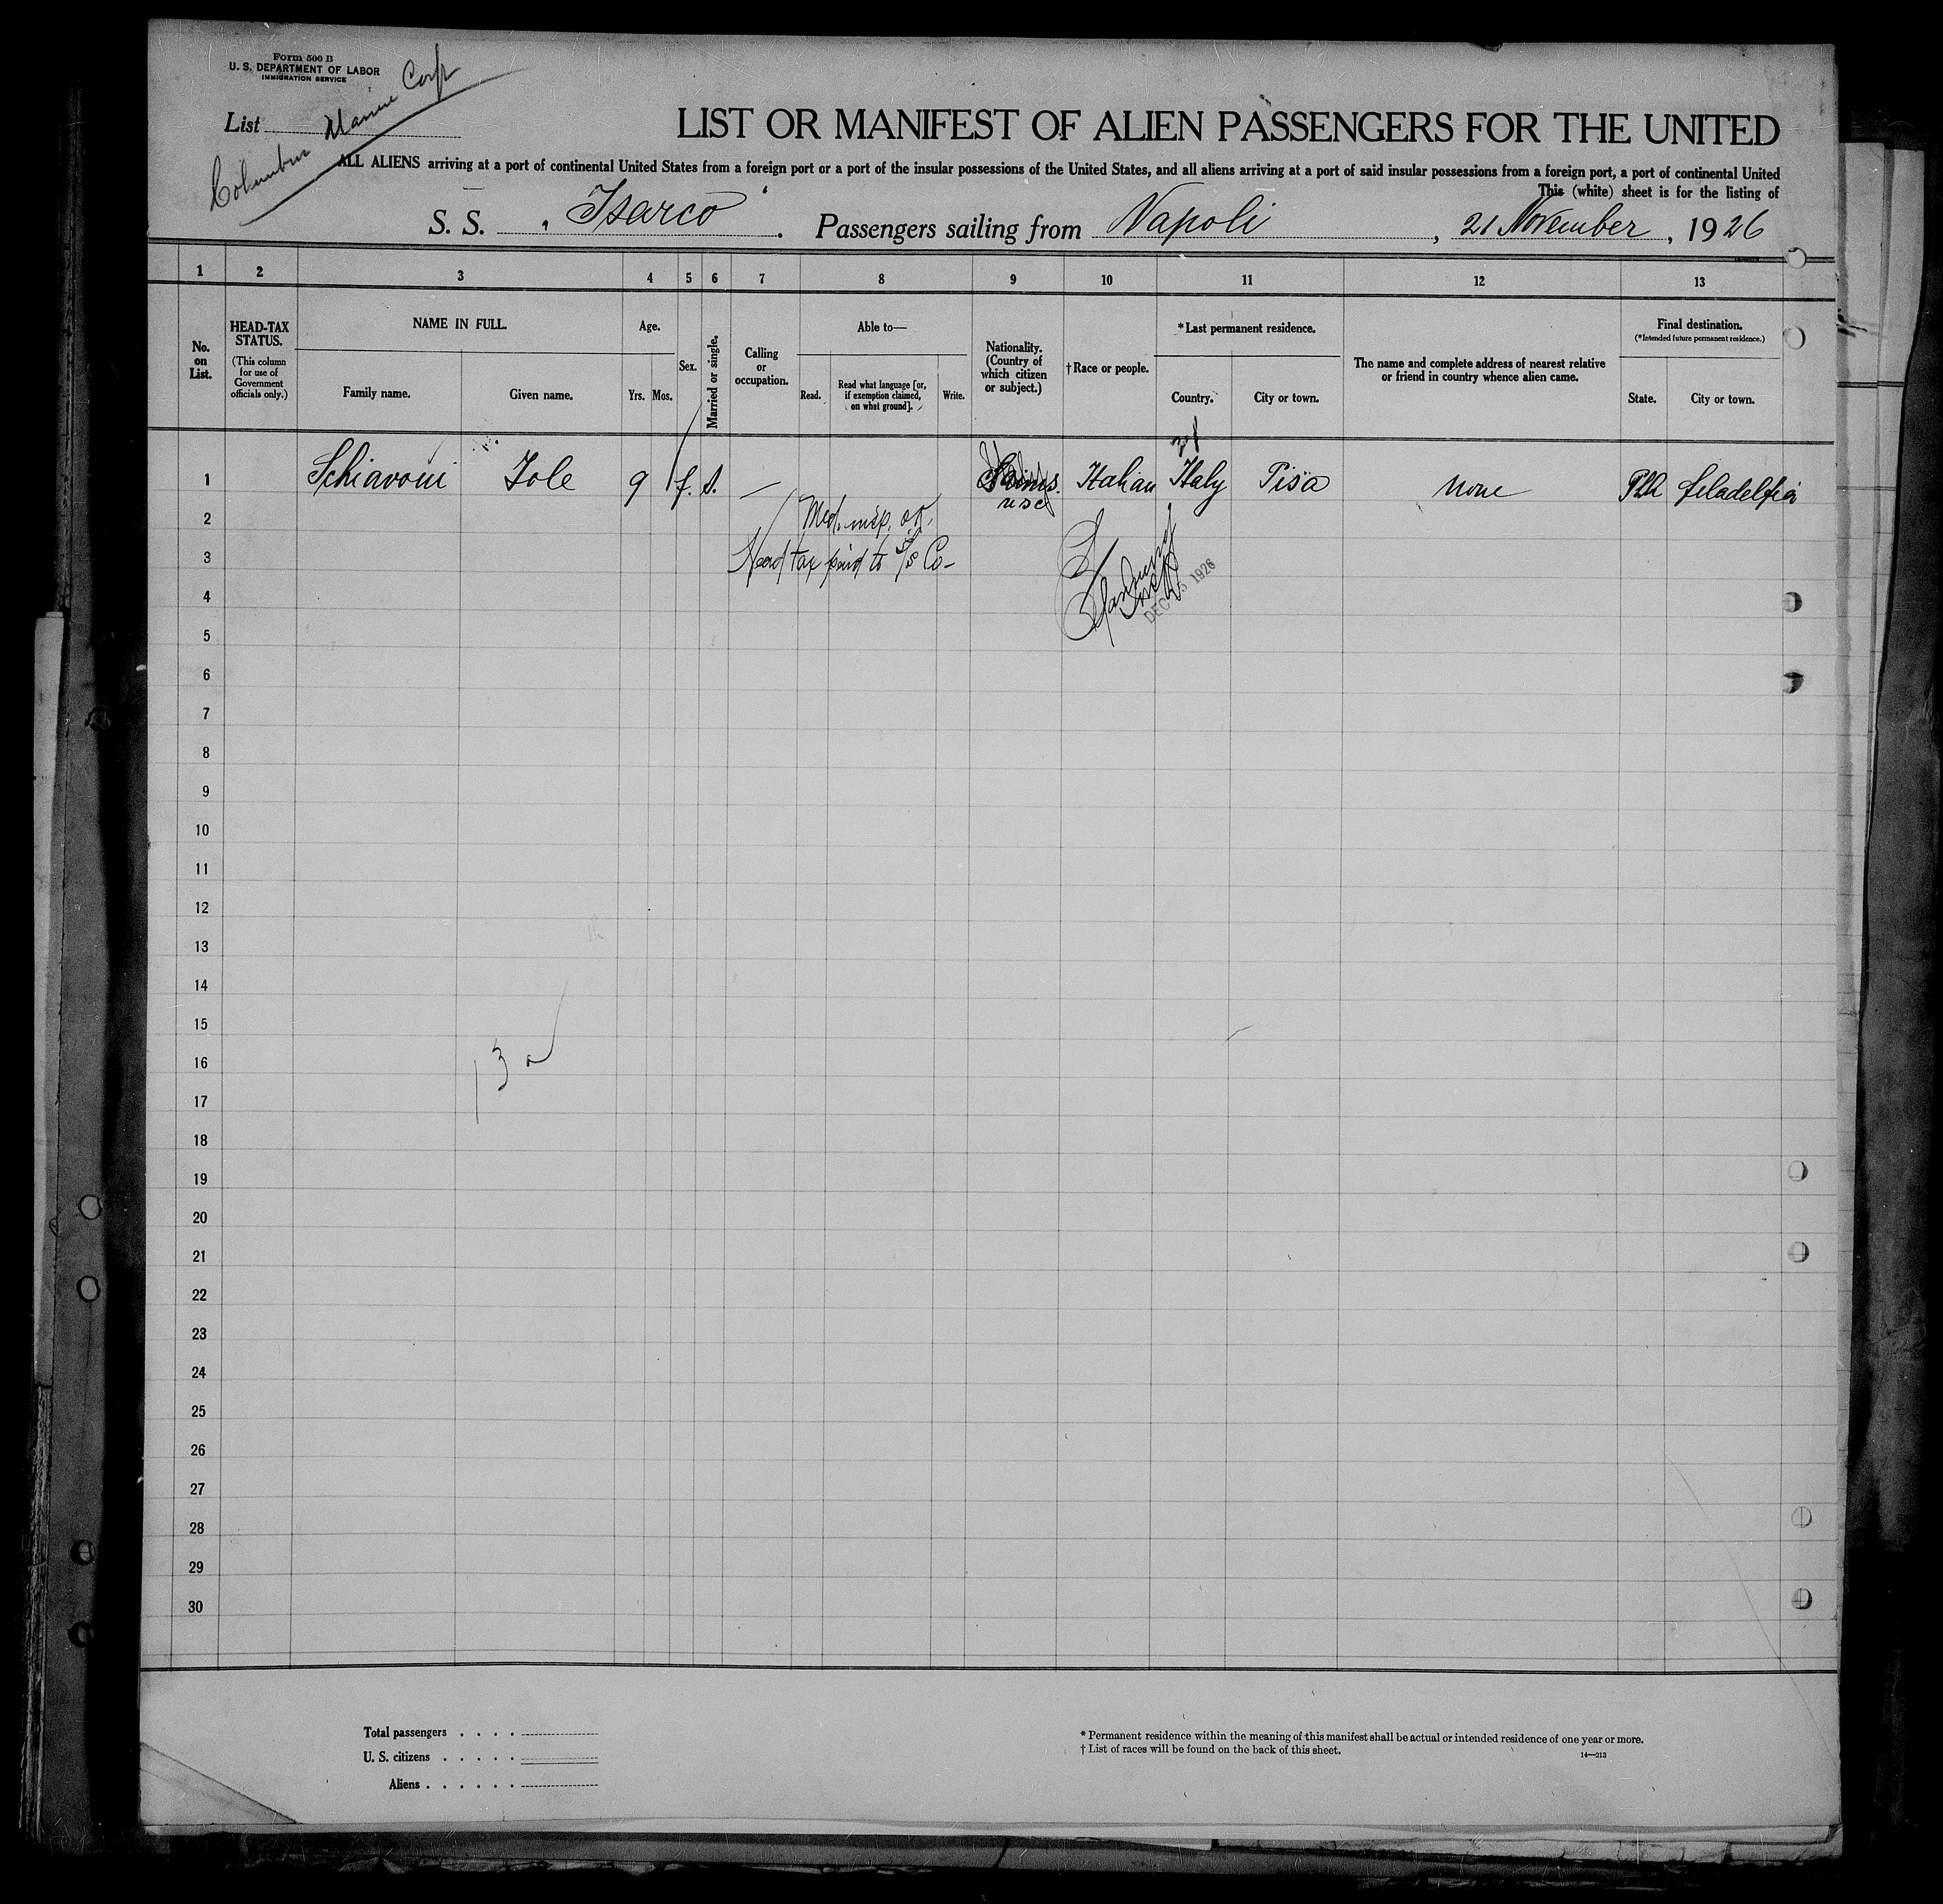 Form 500 B
U. S. DEPARTMENT OF LABOR
IMMIGRATION SERVICE
List
Columbus Marine Corp
LIST OR MANIFEST OF ALIEN PASSENGERS FOR THE UNITED
ALL ALIENS arriving at a port of continental United States from a foreign port or a port of the insular possessions of the United States, and all aliens arriving at a port of said insular possessions from a foreign port, a port of continental United
This (white) sheet is for the listing of
S. S. Isarco. Passengers sailing from Napoli, 21 November, 1926
1 2 3 4 5 6 7 8 9 10 11 12 13
No. on List.
HEAD-TAX STATUS.
(This column for use of Government officials only.)
NAME IN FULL.
Family name. Given name.
Age.
Yrs. Mos.
Sex.
Married or single.
Calling or occupation.
Able to—
Read. Read what language [or, if exemption claimed, on what ground]. Write.
Nationality. (Country of which citizen or subject.)
†Race or people.
*Last permanent residence.
Country. City or town.
The name and complete address of nearest relative or friend in country whence alien came.
Final destination.
(*Intended future permanent residence.)
State. City or town.
1 Schiavoni Iole 9 f. s. — Italian Italy Pisa none Pha filadelfia
usc
2 Med. insp. on
3 Head tax paid to S/S Co-
DEC 1926
4
5
6
7
8
9
10
11
12
13
14
15
16
17
18
19
20
21
22
23
24
25
26
27
28
29
30
Total passengers . . . .
U. S. citizens . . . . .
Aliens . . . . . .
* Permanent residence within the meaning of this manifest shall be actual or intended residence of one year or more.
† List of races will be found on the back of this sheet.
14—213